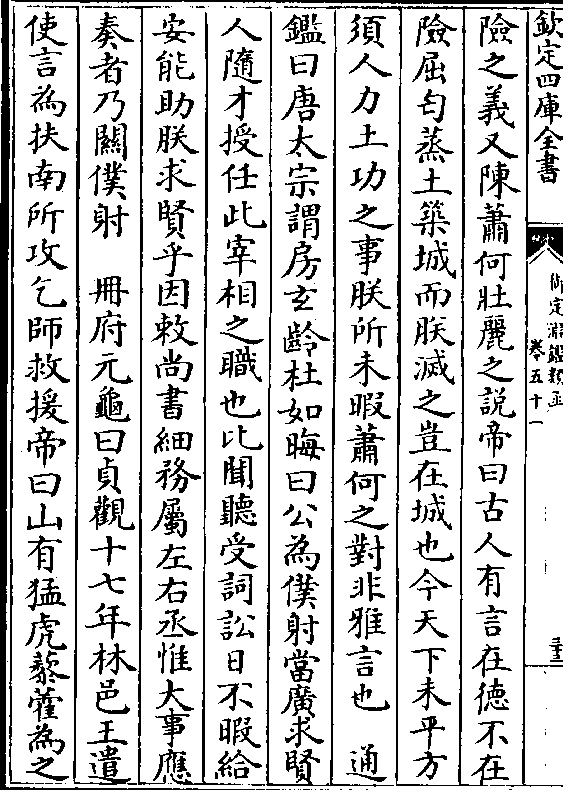 欽定四庫全書
御定淵鑑類函
卷五十一
險之義又陳蕭何壯麗之說帝曰古人有言在德不在
險屈匄蒸土築城而朕滅之豈在城也今天下未平方
須人力土功之事朕所未暇蕭何之對非雅言也　通
鑑曰唐太宗謂房玄齡杜如晦曰公為僕射當廣求賢
人隨才授任此宰相之職也比聞聽受詞訟日不暇給
安能助朕求賢乎因敕尚書細務屬左右丞惟大事應
奏者乃關僕射　冊府元龜曰貞觀十七年林邑王遣
使言為扶南所攻乞師救援帝曰山有猛虎藜藿為之